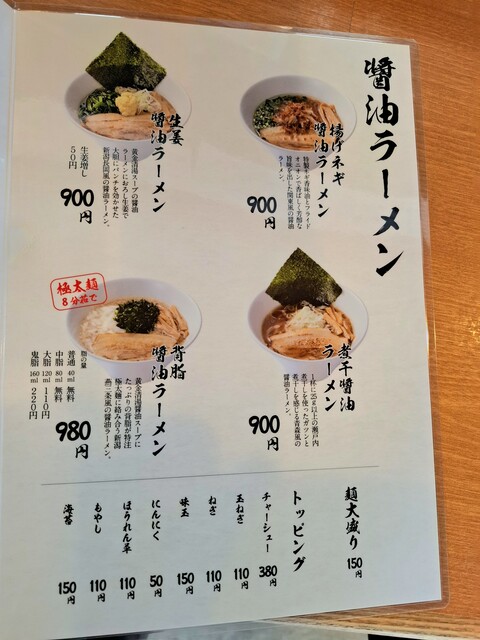 醤油ラーメン
揚げネギ
醤油ラーメン
特製ネギ香味油とフライド
オニオンで香ばしく芳醇な
旨味を出した関東風の醤油
ラーメン。
900円
生姜
醤油ラーメン
黄金清湯スープの醤油
ラーメンにおろし生姜で
大胆にパンチを効かせた
新潟長岡風の醤油ラーメン。
生姜増し
50円
900円
煮干醤油
ラーメン
1杯に25g以上の瀬戸内
煮干しを使ったガツンと
煮干しを感じる青森風の
醤油ラーメン。
900円
極太麺
8分茹で
背脂
醤油ラーメン
黄金清湯醤油スープに
たっぷりの背脂が特注
極太麺に絡み合う新潟
燕三条風の醤油ラーメン。
脂の量
普通 40ml 無料
中脂 80ml 無料
大脂 120ml 110円
鬼脂 160ml 220円
980円
麺大盛り 150円
トッピング
チャーシュー 380円
玉ねぎ 110円
ねぎ 110円
味玉 150円
にんにく 50円
ほうれん草 110円
もやし 110円
海苔 150円